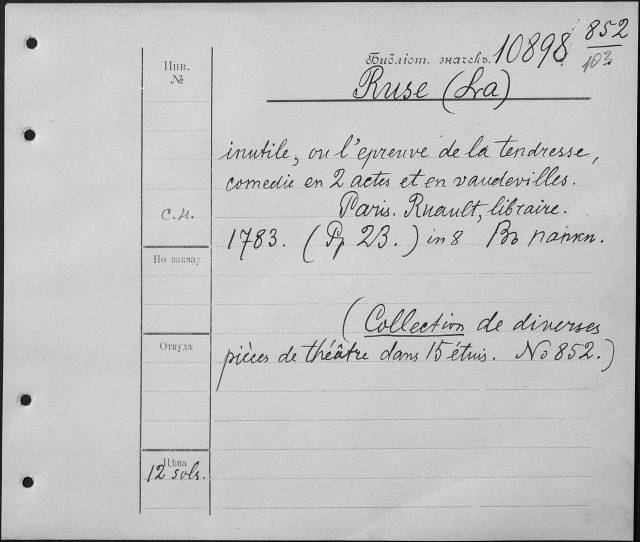 852
Инв.
№
Библіот. значекъ. 10898
103
Ruse (La)
inutile, ou l'epreuve de la tendresse,
comedie en 2 actes et en vaudevilles.
Paris. Ruault, libraire.
С.Н.
1783. (Pp 23.) in 8 Въ папкѣ.
По заказу
(Collection de diverses
Откуда
pièces de théâtre dans 15 étuis. No 852.)
Цѣна
12 sols.